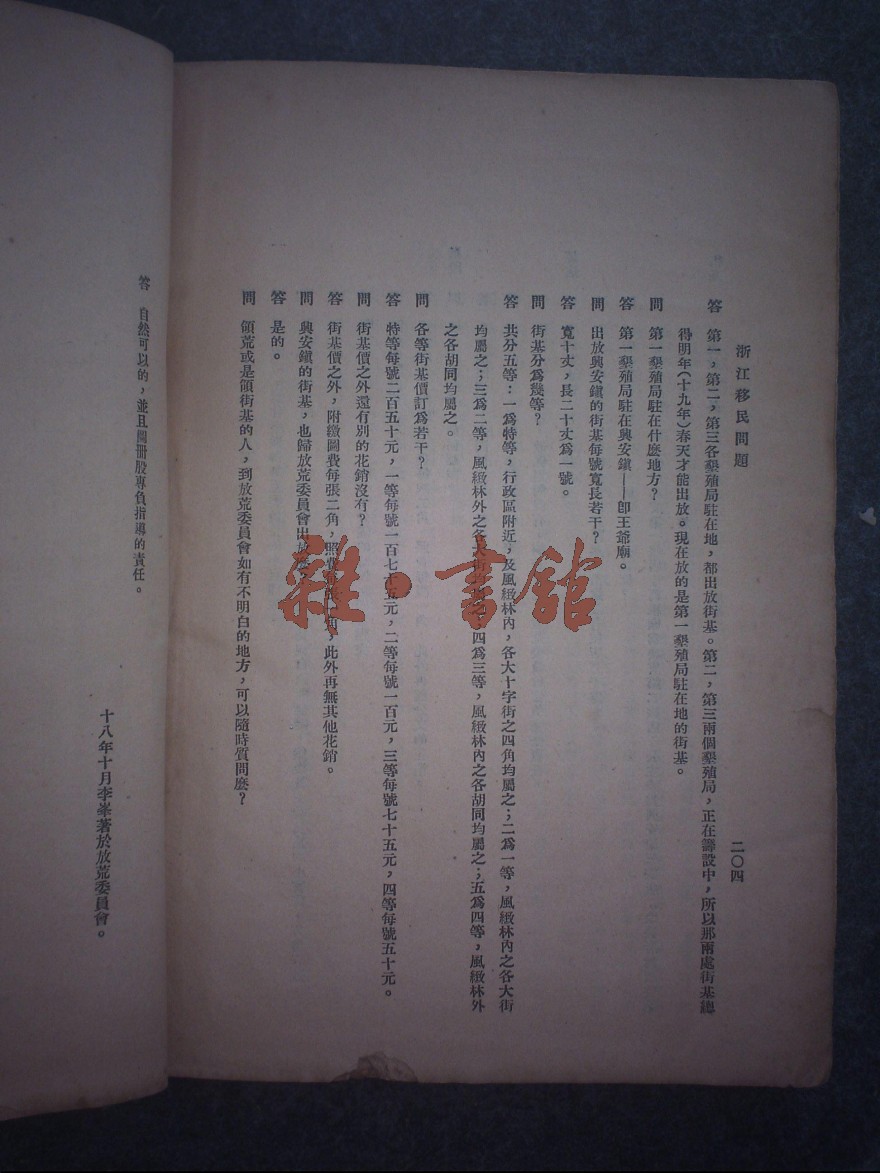 浙江移民問題
二〇四
答 第一，第二，第三各墾殖局駐在地，都出放街基。第二，第三兩個墾殖局，正在籌設中，所以那兩處街基總
得明年(十九年)春天才能出放。現在放的是第一墾殖局駐在地的街基。
問 第一墾殖局駐在什麼地方？
答 第一墾殖局駐在興安鎮——卽王爺廟。
問 出放興安鎮的街基每號寬長若干？
答 寬十丈，長二十丈爲一號。
問 街基分爲幾等？
答 共分五等：一爲特等，行政區附近，及風緻林內，各大十字街之四角均屬之；二爲一等，風緻林內之各大街
均屬之；三爲二等，風緻林外之各大街均屬之；四爲三等，風緻林內之各胡同均屬之；五爲四等，風緻林外
之各胡同均屬之。
問 各等街基價訂爲若干？
答 特等每號二百五十元，一等每號一百七十五元，二等每號一百元，三等每號七十五元，四等每號五十元。
問 街基價之外還有別的花銷沒有？
答 街基價之外，附繳圖費每張二角，照費每，此外再無其他花銷。
問 興安鎮的街基，也歸放荒委員會出放
答 是的。
問 領荒或是領街基的人，到放荒委員會如有不明白的地方，可以隨時質問麼？
答 自然可以的，並且圖冊股專負指導的責任。
十八年十月李峯著於放荒委員會。
雜·書館